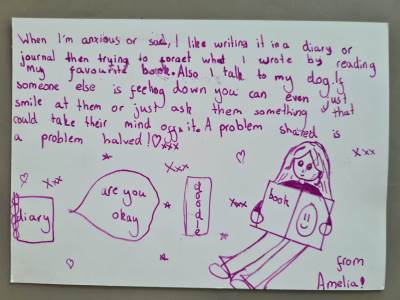 When I'm anxious or sad, I like writing it in a diary or
journal then trying to forget what I wrote by reading
my favourite book. Also I talk to my dog. If
someone else is feeling down you can even just
smile at them or just ask them something that
could take their mind off it. A problem shared is
a problem halved!♡xxx
Xxx
Xxx
Xxx
Xxx
diary
are you
okay
book
from
Amelia!